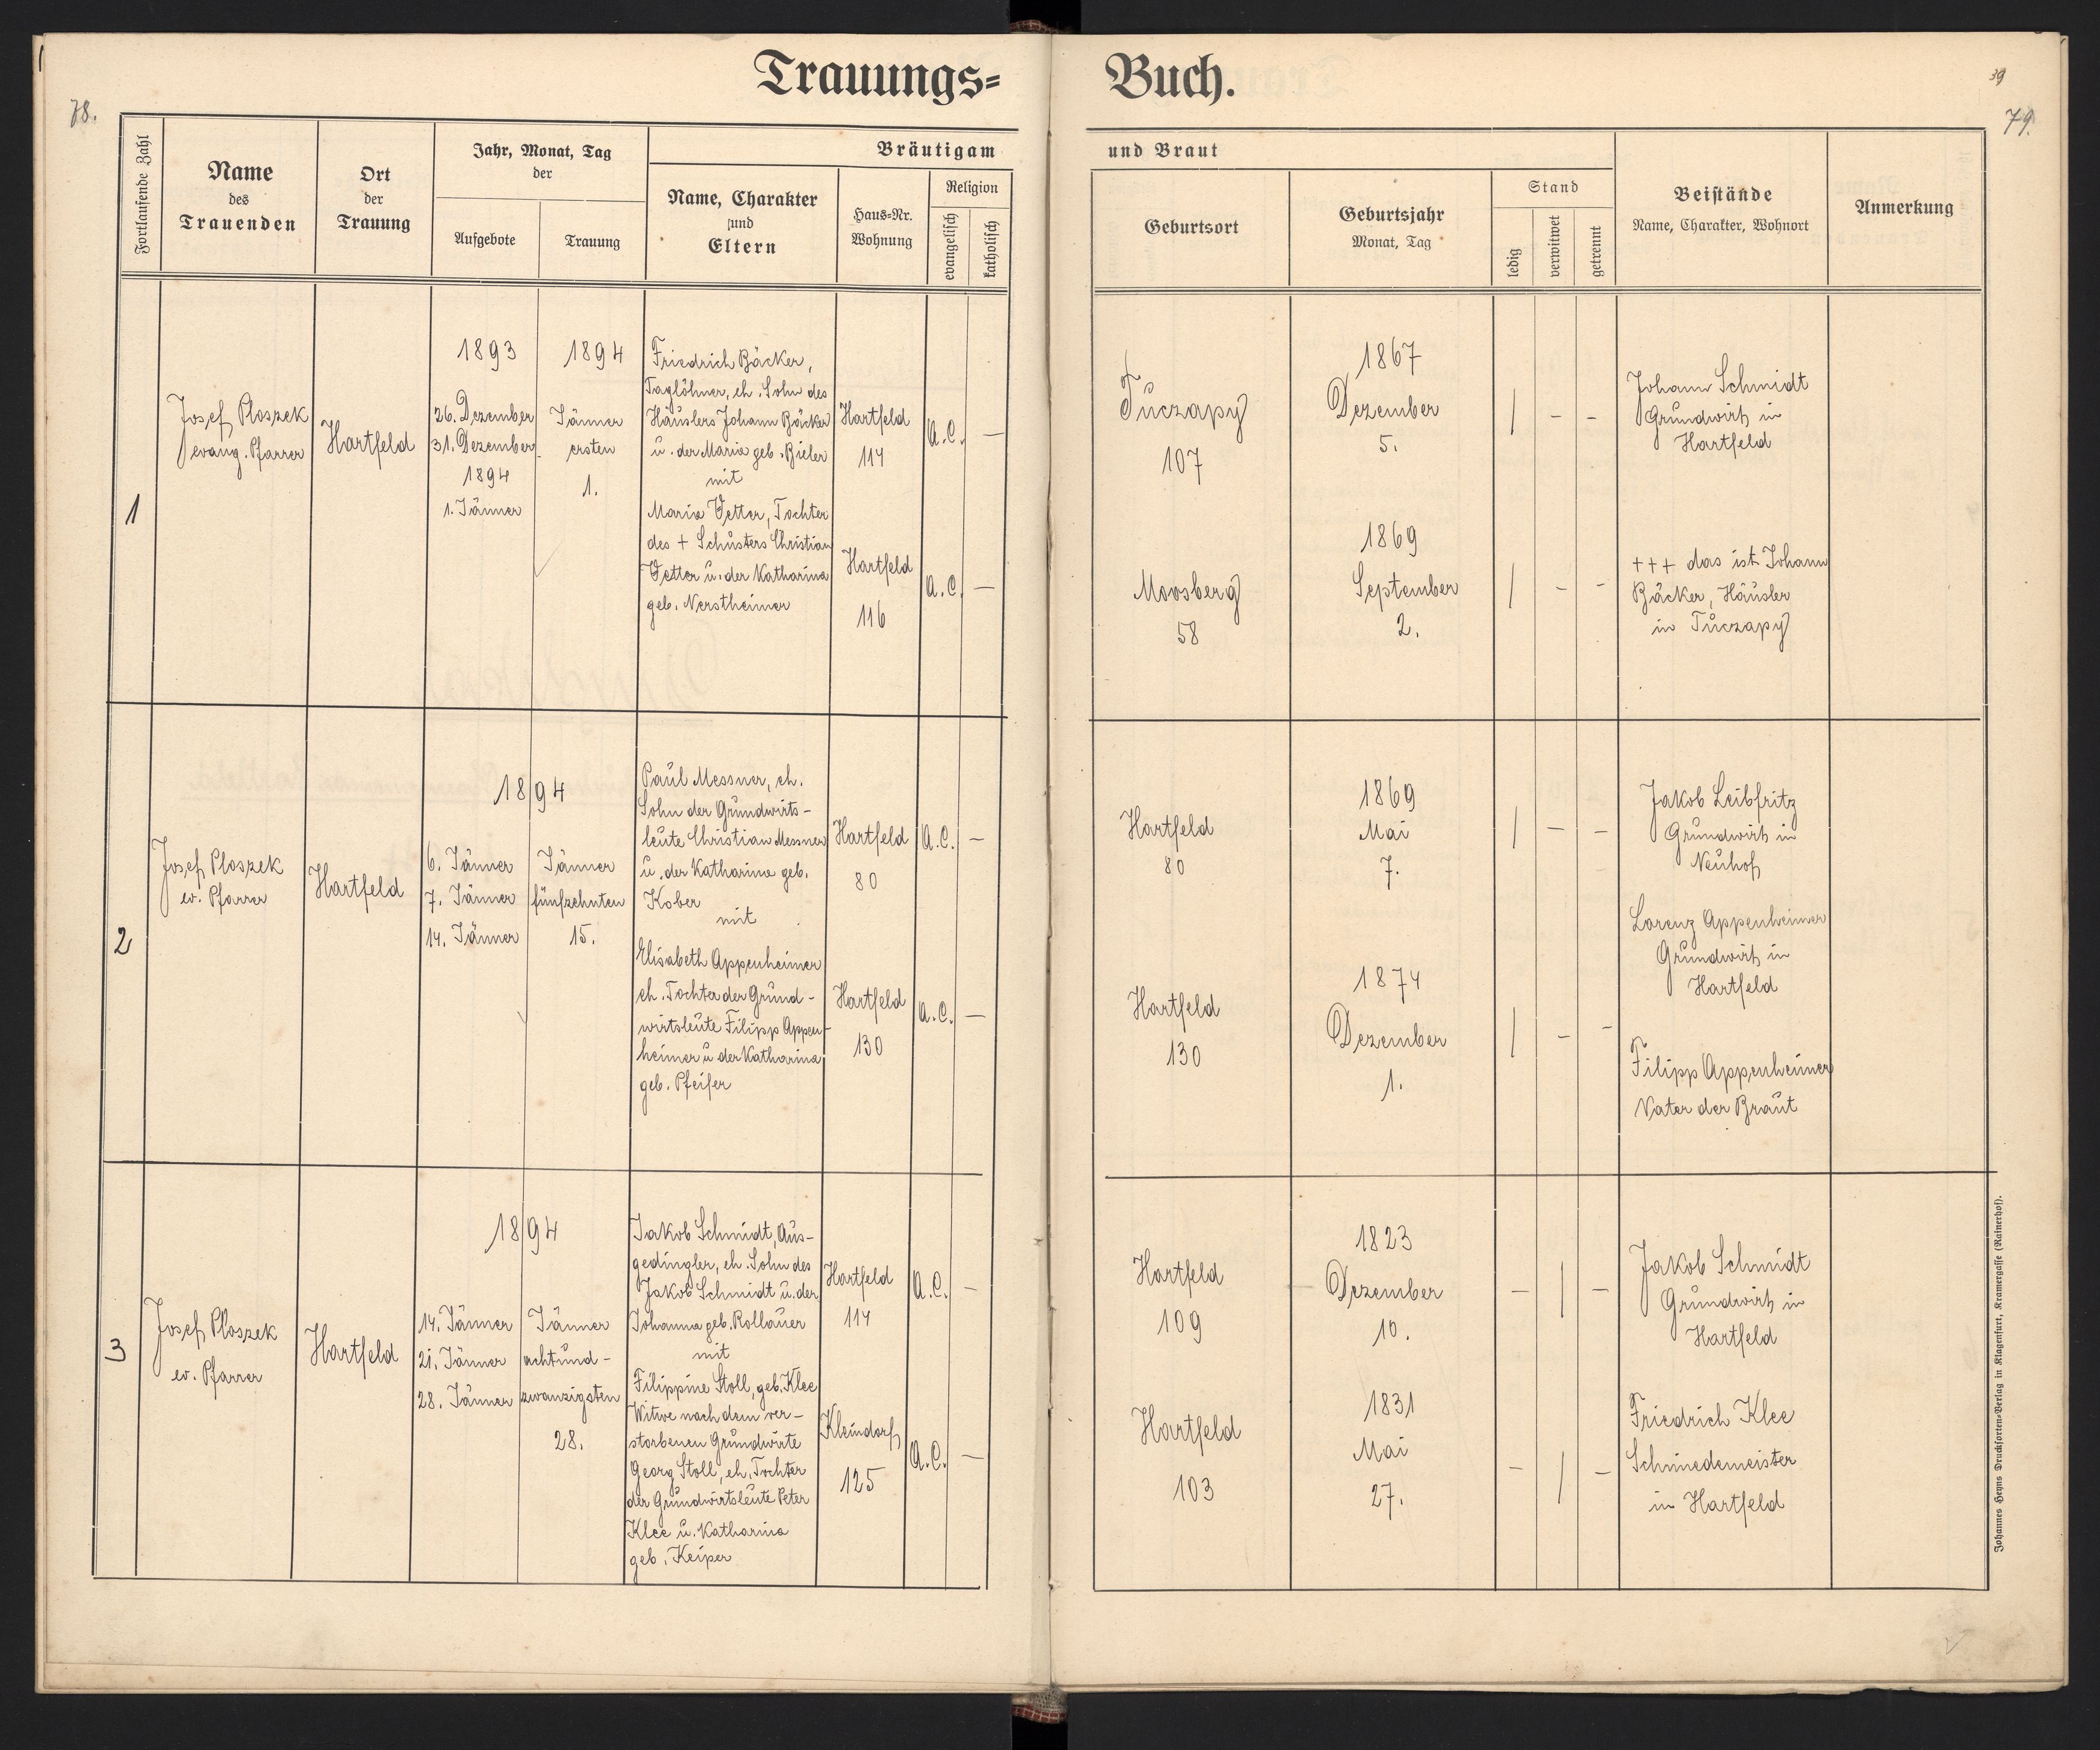 Trauungs=
Buch.
39
78.
79.
Fortlaufende Zahl
Name
des
Trauenden
Ort
der
Trauung
Jahr, Monat, Tag
der
Aufgebote
Trauung
Bräutigam
Name, Charakter
und
Eltern
Haus=Nr.
Wohnung
Religion
evangelisch
katholisch
und Braut
Geburtsort
Geburtsjahr
Monat, Tag
Stand
ledig
verwitwet
getrennt
Beistände
Name, Charakter, Wohnort
Anmerkung
1
Josef Ploszek
evang. Pfarrer
Hartfeld
1893
26. Dezember
31. Dezember
1894
1. Jänner
1894
Jänner
ersten
1.
Friedrich Bäcker,
Taglöhner, eh. Sohn des
Häuslers Johann Bäcker
u. der Maria geb. Bieler
mit
Maria Vetter, Tochter
des + Schusters Christian
Vetter u. der Katharina
geb. Nerstheimer
Hartfeld
114
Hartfeld
116
A.C. —
A.C. —
Tuczapy
107
Moosberg
58
1867
Dezember
5.
1869
September
2.
| – –
| – –
Johann Schmidt
Grundwirth in
Hartfeld
+++ das ist Johann
Bäcker, Häusler
in Tuczapy
2
Josef Ploszek
ev. Pfarrer
Hartfeld
1894
6. Jänner
7. Jänner
14. Jänner
Jänner
fünfzehnten
15.
Paul Messner, eh.
Sohn der Grundwirts-
leute Christian Messner
u. der Katharina geb.
Kober
mit
Elisabeth Appenheimer
eh. Tochter der Grund-
wirtsleute Filipp Appen-
heimer u der Katharina
geb. Pfeifer
Hartfeld
80
Hartfeld
130
A.C. —
A.C. —
Hartfeld
80
Hartfeld
130
1869
Mai
7.
1874
Dezember
1.
| – –
| – –
Jakob Leibfritz
Grundwirth in
Neuhof
Lorenz Appenheimer
Grundwirth in
Hartfeld
Filipp Appenheimer
Vater der Braut
3
Josef Ploszek
ev. Pfarrer
Hartfeld
1894
14. Jänner
21. Jänner
28. Jänner
Jänner
achtund-
zwanzigsten
28.
Jakob Schmidt, Aus-
gedingler, eh. Sohn des
Jakob Schmidt u. der
Johanna geb. Rollauer
mit
Filippine Stoll, geb. Klee
Witwe nach dem ver-
storbenen Grundwirte
Georg Stoll, eh. Tochter
der Grundwirtsleute Peter
Klee u. Katharina
geb. Keiper
Hartfeld
114
Kleindorf
125
A.C. —
A.C. —
Hartfeld
109
Hartfeld
103
1823
Dezember
10.
1831
Mai
27.
– | –
– | –
Jakob Schmidt
Grundwirth in
Hartfeld
Friedrich Klee
Schmiedemeister
in Hartfeld
Johannes Heyns Drucksorten=Verlag in Klagenfurt, Kramergasse (Rainerhof).